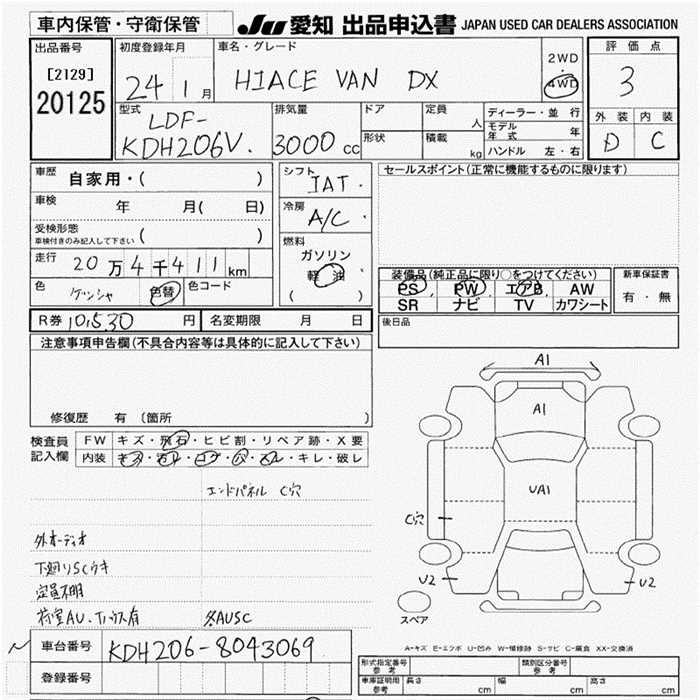 車内保管・守衛保管
JU 愛知 出品申込書 JAPAN USED CAR DEALERS ASSOCIATION
出品番号
[2129]
20125
初度登録年月
24 1月
車名・グレード
HIACE VAN DX
2WD
・
4WD
評価点
3
外装 内装
D C
型式
LDF-
KDH206V.
排気量
3000cc
ドア
形状
定員 人
積載 kg
ディーラー・並行
モデル年式 年
ハンドル 左・右
車歴 自家用・( )
車検 年 月( 日)
受検形態
車検付きのみ記入して下さい ( )
走行 20万4千411km
色 色替 色コード
シフト
IAT.
冷房
A/C
燃料
ガソリン
軽油
( )
セールスポイント(正常に機能するものに限ります)
装備品(純正品に限り○をつけてください)
PS PW エアB AW
SR ナビ TV カワシート
新車保証書
有・無
R券 10,530円
名変期限 月 日
後日品
注意事項申告欄(不具合内容等は具体的に記入して下さい)
修復歴 有 (箇所 )
検査員記入欄
FW キズ・飛石・ヒビ割・リペア跡・X要
内装 キズ・ ・コゲ・穴・ ・キレ・破レ
エンドパネル C穴
外オーディオ
下廻りSCウキ
定員不明
荷室AU、 有
AUSC
A1
A1
UA1
C穴
U2
U2
スペア
A-キズ E-エクボ U-凹み W-補修跡 S-サビ C-腐食 XX-交換済
車台番号 KDH206-8043069
登録番号
形式指定番号 参考
類別区分番号 参考
車庫証明用 参考
長さ cm 幅 cm 高さ cm